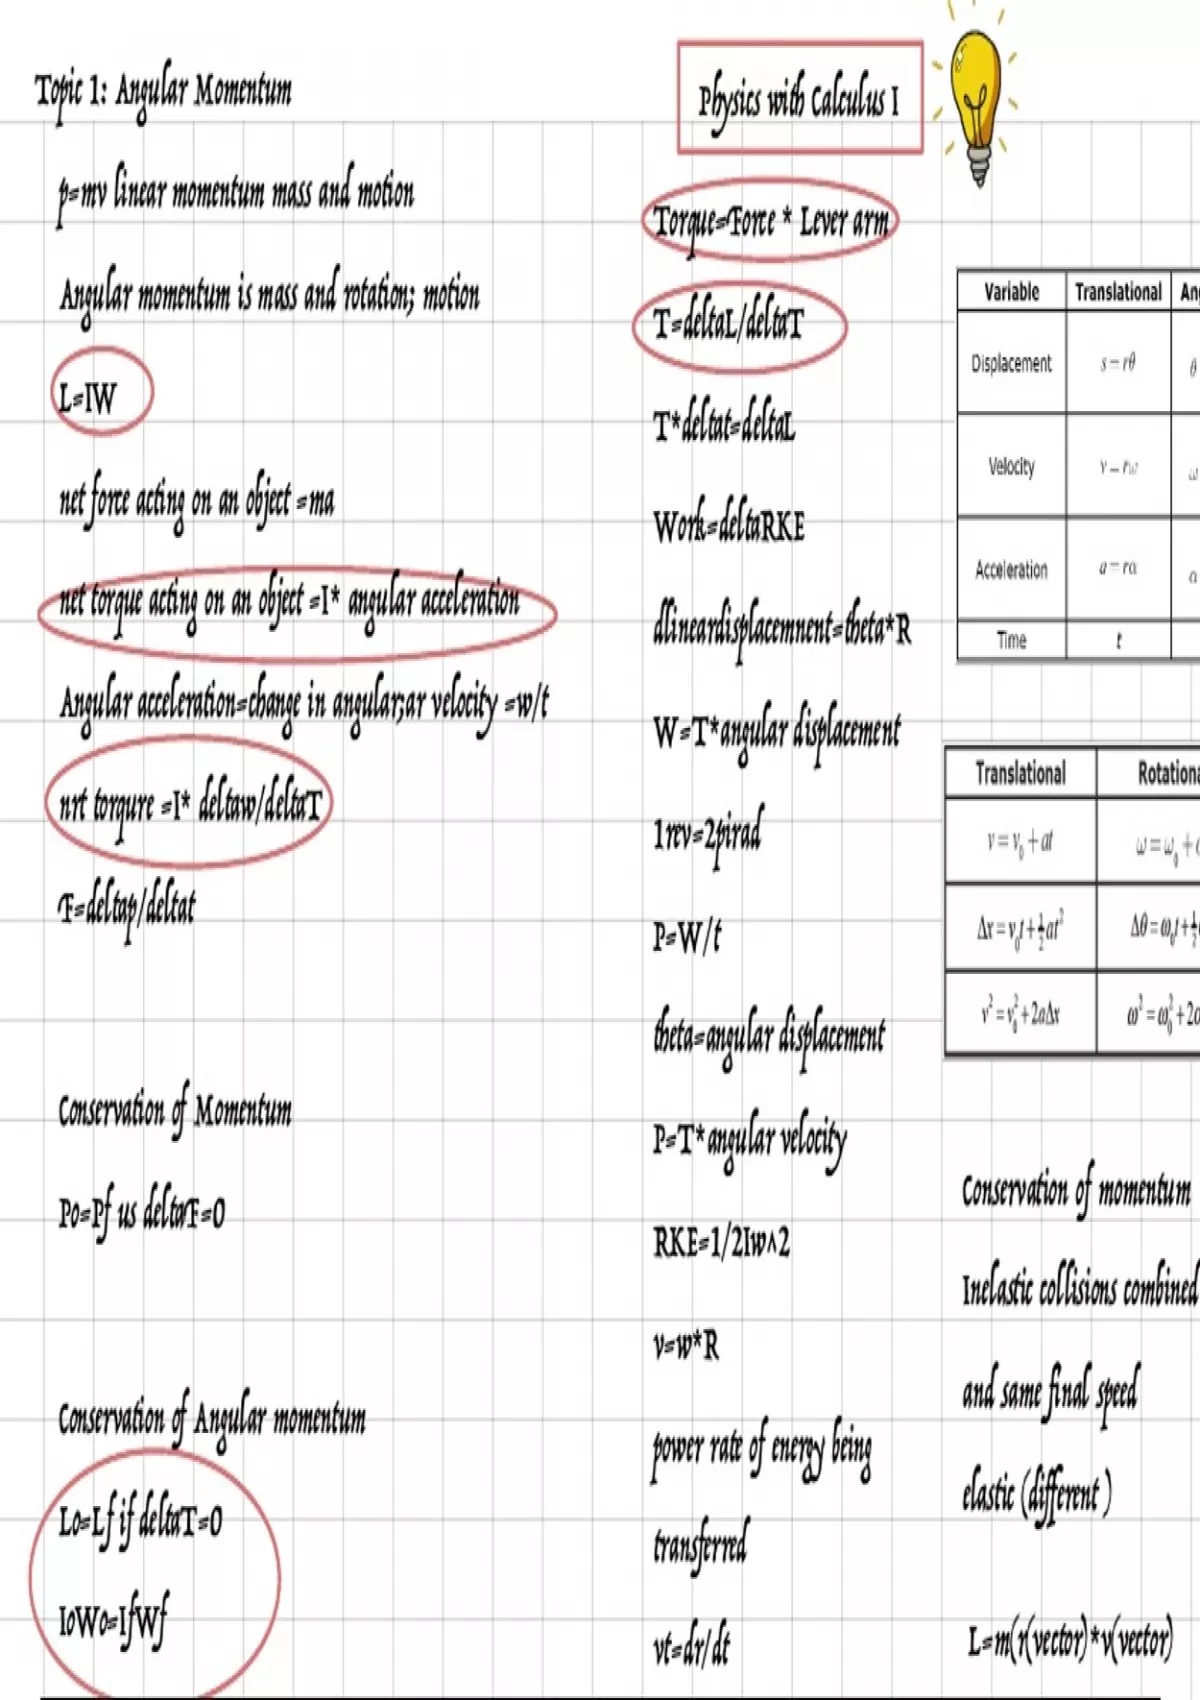 Topic 1: Angular Momentum
p=mv linear momentum mass and motion
Angular momentum is mass and rotation; motion
L=IW
net force acting on an object =ma
net torque acting on an object =I* angular acceleration
Angular acceleration=change in angular;ar velocity =w/t
nrt torqure =I* deltaw/deltaT
F=deltap/deltat
Conservation of Momentum
Po=Pf us deltaF=0
Conservation of Angular momentum
Lo=Lf if deltaT=0
IoWo=IfWf
Physics with Calculus I
Torque=Force * Lever arm
T=deltaL/deltaT
T*deltat=deltaL
Work=deltaRKE
dlineardisplacemnent=theta*R
W=T*angular displacement
1rev=2pirad
P=W/t
theta=angular displacement
P=T*angular velocity
RKE=1/2Iw^2
v=w*R
power rate of energy being
transferred
vt=dr/dt
Variable Translational
Displacement s = rθ θ
Velocity v = rω ω
Acceleration a = rα α
Time t
Translational
v = v₀ + at ω = ω₀ +
Δx = v₀t + ½at² Δθ = ω₀t + ½
v² = v₀² + 2aΔx ω² = ω₀² + 2α
Conservation of momentum
Inelastic collisions combined
and same final speed
elastic (different )
L=m(r(vector)*v(vector)